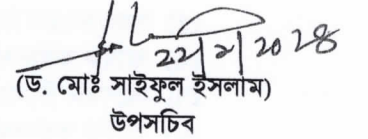 22/2/2024
(ড. মোঃ সাইফুল ইসলাম)
উপসচিব